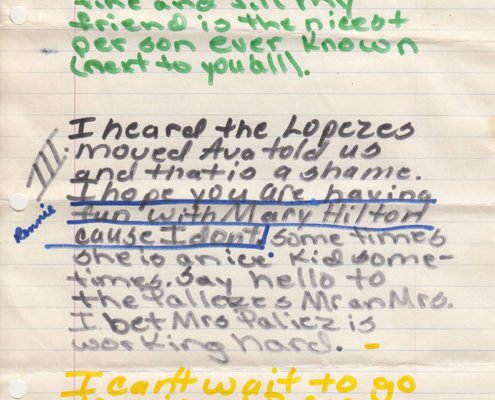 friend is the nicest
person ever known
(next to you all).
III.
I heard the Lopezes
moved Ava told us
and that is a shame.
I hope you are having
fun with Mary Hilton
cause I dont! some times
Rennie
she is a nice kid some-
times. Say hello to
the Pallozes Mr an Mrs.
I bet Mrs Palicz is
working hard.
I can't wait to go